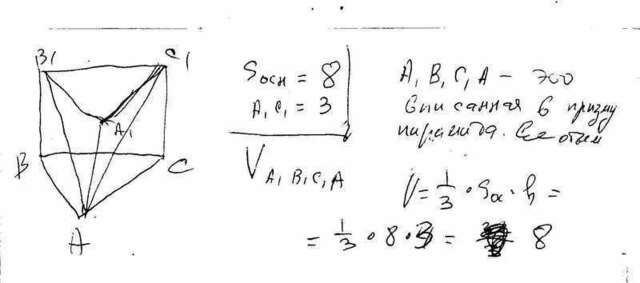 B₁ C₁
A₁
B C
A
Sосн = 8
A₁C₁ = 3
V A₁B₁C₁A
A₁B₁C₁A - это
вписанная в призму
пирамида. Ее объем
V = 1/3 · Sосн · h =
= 1/3 · 8 · 3 = 8